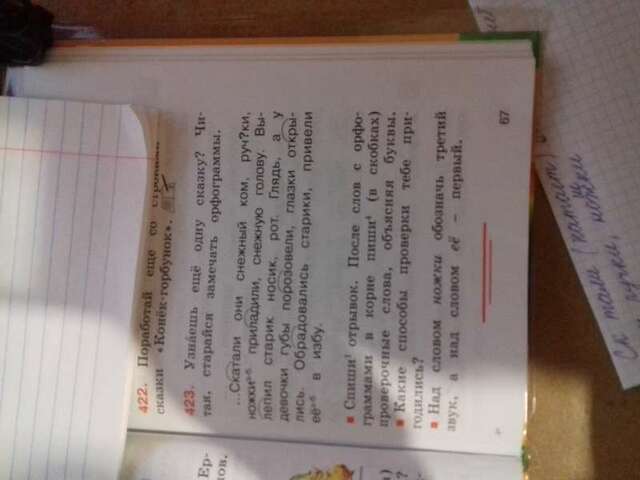 422. Поработай ещё со
сказки «Конёк-горбунок».
423. Узна́ешь ещё одну сказку? Чи-
тая, старайся замечать орфограммы.
...Скатали они снежный ком, руч?ки,
ножки приладили, снежную голову. Вы-
лепил старик носик, рот. Глядь, а у
девочки губы порозовели, глазки откры-
лись. Обрадовались старики, привели
её в избу.
■ Спиши¹ отрывок. После слов с орфо-
граммами в корне пиши⁴ (в скобках)
проверочные слова, объясняя буквы.
■ Какие способы проверки тебе при-
годились?
■ Над словом ножки обозначь третий
звук, а над словом её – первый.
67
Ер-
ов.
)
?
Ск тали (катает)
ручки, ножки